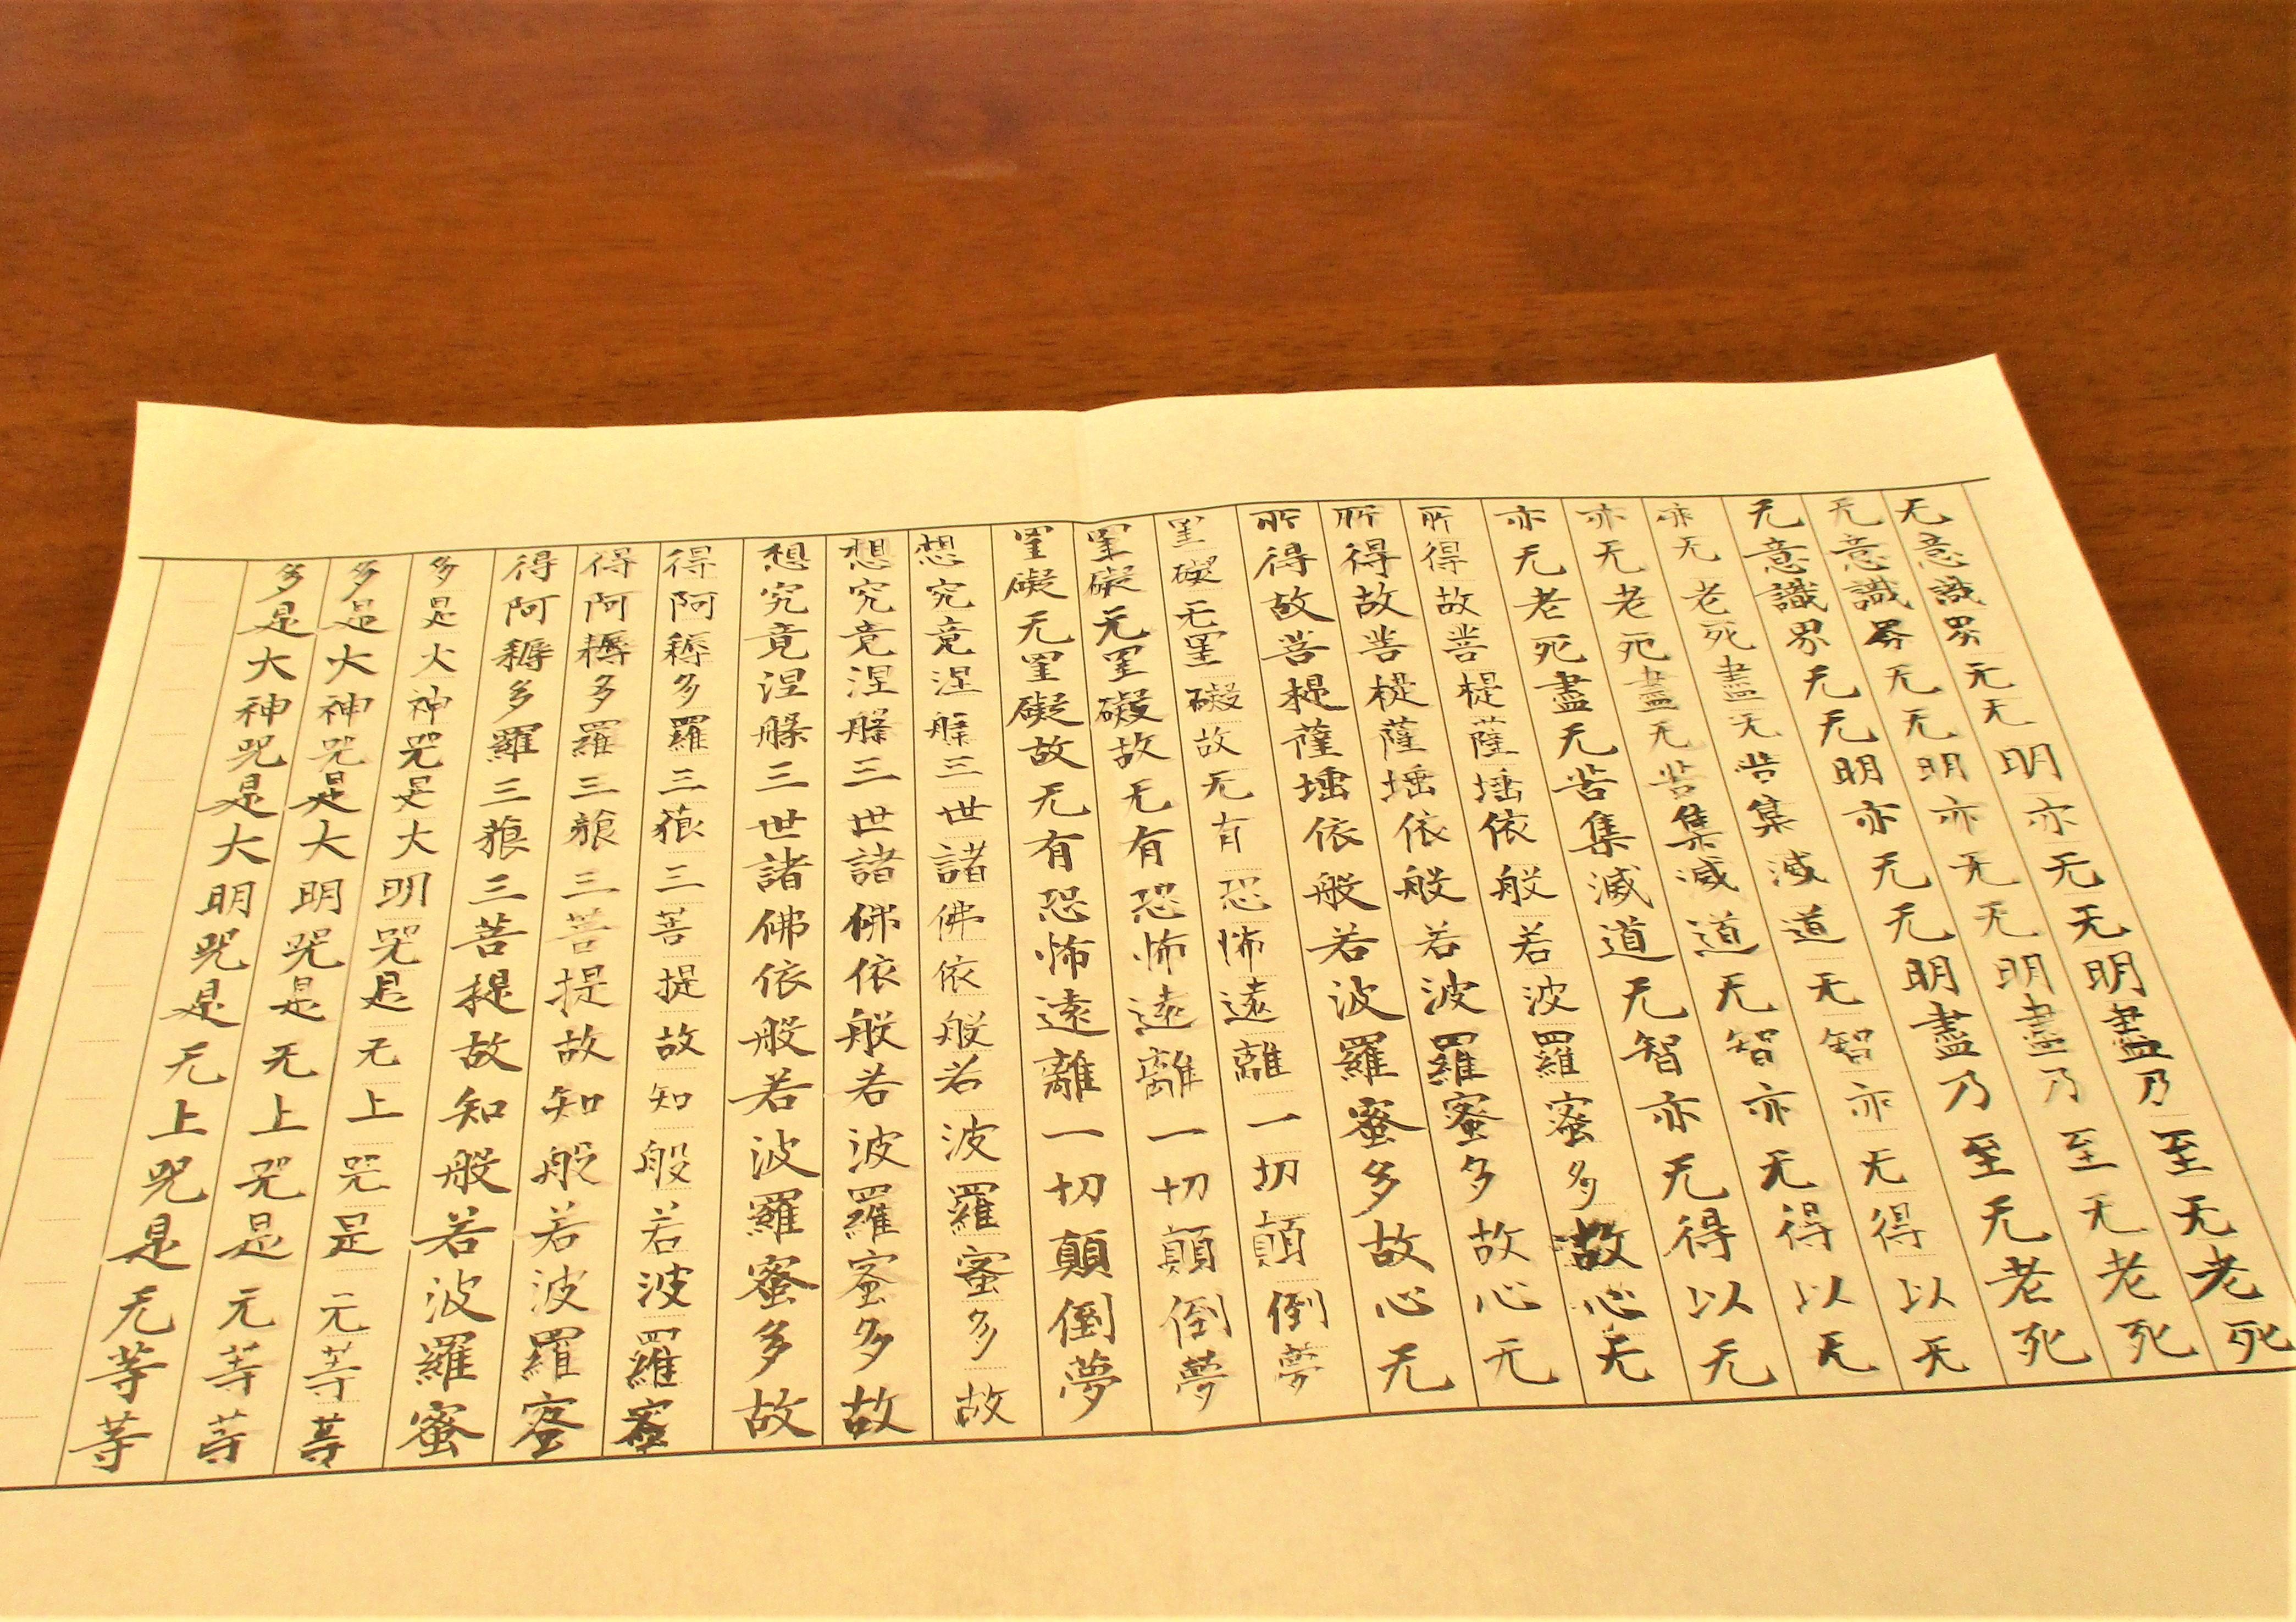 无意識界无无明亦无无明盡乃至无老死
无意識界无无明亦无无明盡乃至无老死
无意識界无无明亦无无明盡乃至无老死
亦无老死盡无苦集滅道无智亦无得以无
亦无老死盡无苦集滅道无智亦无得以无
亦无老死盡无苦集滅道无智亦无得以无
所得故菩提薩埵依般若波羅蜜多故心无
所得故菩提薩埵依般若波羅蜜多故心无
所得故菩提薩埵依般若波羅蜜多故心无
罣礙无罣礙故无有恐怖遠離一切顛倒夢
罣礙无罣礙故无有恐怖遠離一切顛倒夢
罣礙无罣礙故无有恐怖遠離一切顛倒夢
想究竟涅槃三世諸佛依般若波羅蜜多故
想究竟涅槃三世諸佛依般若波羅蜜多故
想究竟涅槃三世諸佛依般若波羅蜜多故
得阿耨多羅三藐三菩提故知般若波羅蜜
得阿耨多羅三藐三菩提故知般若波羅蜜
得阿耨多羅三藐三菩提故知般若波羅蜜
多是大神咒是大明咒是无上咒是无等等
多是大神咒是大明咒是无上咒是无等等
多是大神咒是大明咒是无上咒是无等等